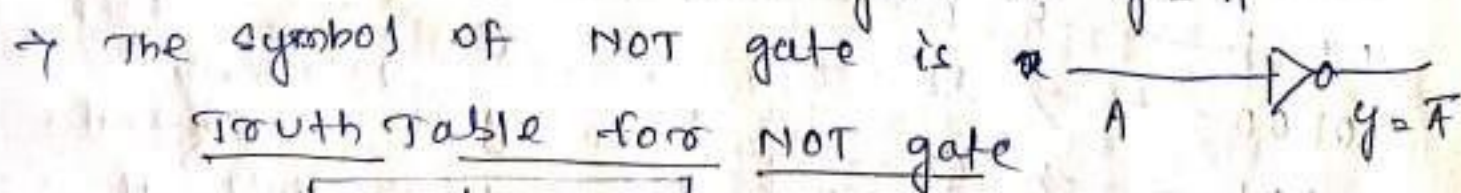 → The symbol of NOT gate is
A y = Ā
Truth Table for NOT gate